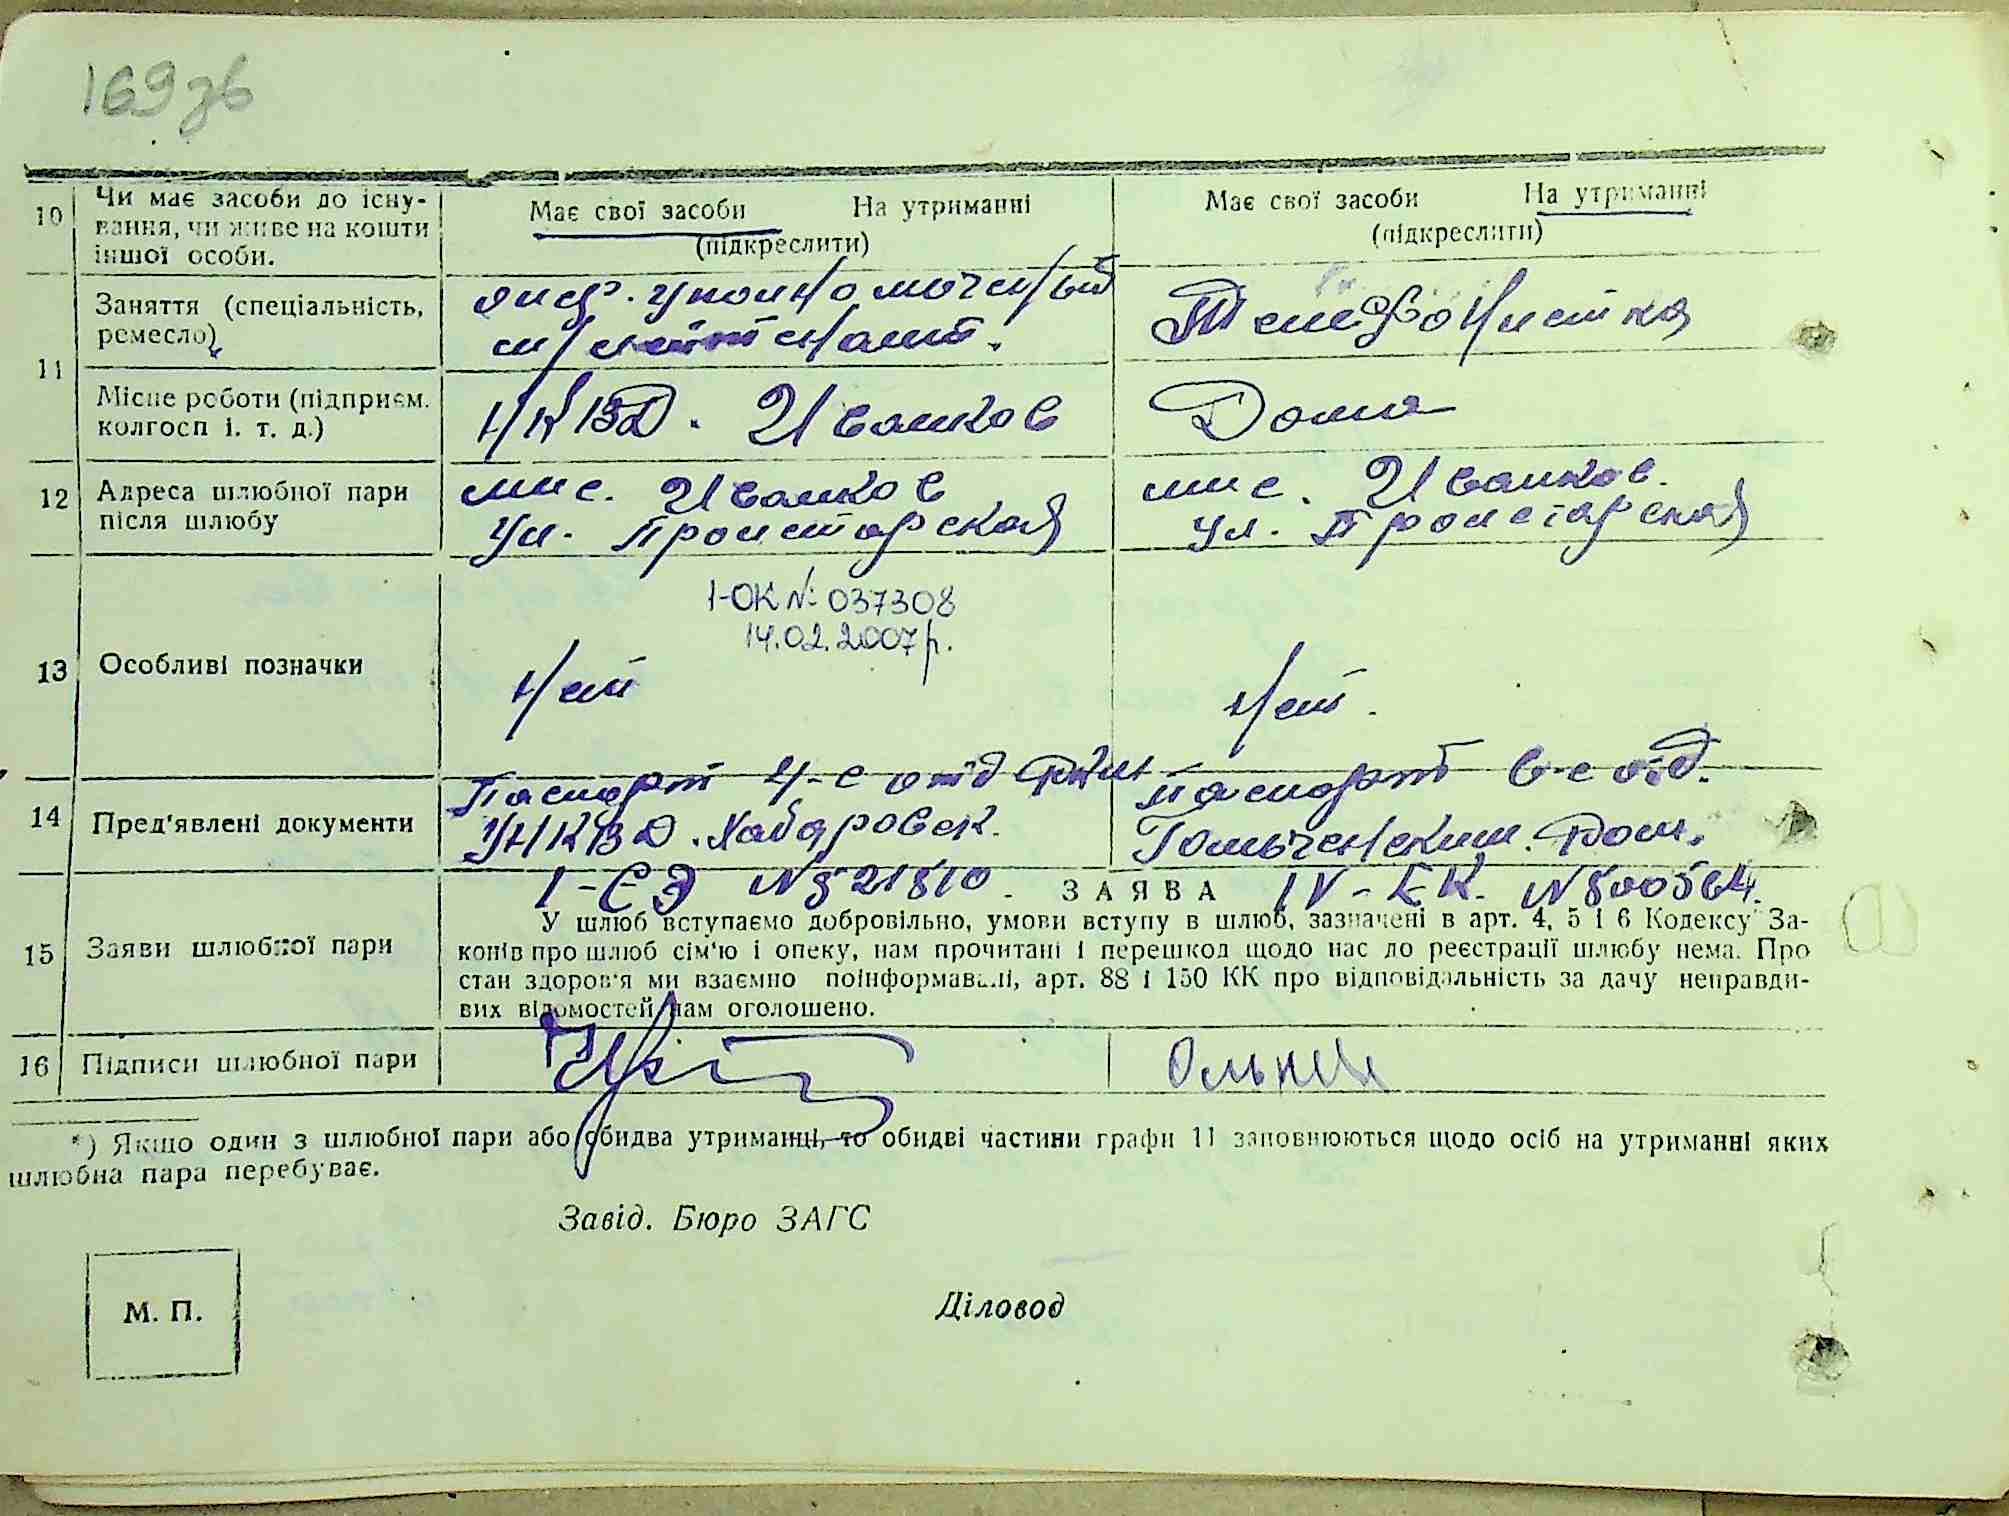 169 зв
10 Чи має засоби до існу-
вання, чи живе на кошти
іншої особи.
Має свої засоби На утриманні
(підкреслити)
Має свої засоби На утриманні
(підкреслити)
11 Заняття (спеціальність,
ремесло)
уполномоченый
лейтенант.
Телефонистка
Місце роботи (підприєм.
колгосп і. т. д.)
НКВД. Иванков
Дома
12 Адреса шлюбної пари
після шлюбу
мис. Иванков
ул. Пролетарская
мис. Иванков.
ул. Пролетарская
13 Особливі позначки
І-ОК № 037308
14.02.2007р.
Нет
Нет.
14 Пред'явлені документи
Паспорт 4-е отд РКМ
УНКВД. Хабаровск.
І-ЄЭ №521510
Паспорт 6-е отд.
IV-ЕК. №500564.
15 Заяви шлюбної пари
ЗАЯВА
У шлюб вступаємо добровільно, умови вступу в шлюб, зазначені в арт. 4, 5 і 6 Кодексу За-
конів про шлюб сім'ю і опеку, нам прочитані і перешкод щодо нас до реєстрації шлюбу нема. Про
стан здоров'я ми взаємно поінформавалі, арт. 88 і 150 КК про відповідальність за дачу неправди-
вих відомостей нам оголошено.
16 Підписи шлюбної пари
*) Якщо один з шлюбної пари або обидва утриманці, то обидві частини графи 11 заповнюються щодо осіб на утриманні яких
шлюбна пара перебуває.
Завід. Бюро ЗАГС
М. П.
Діловод